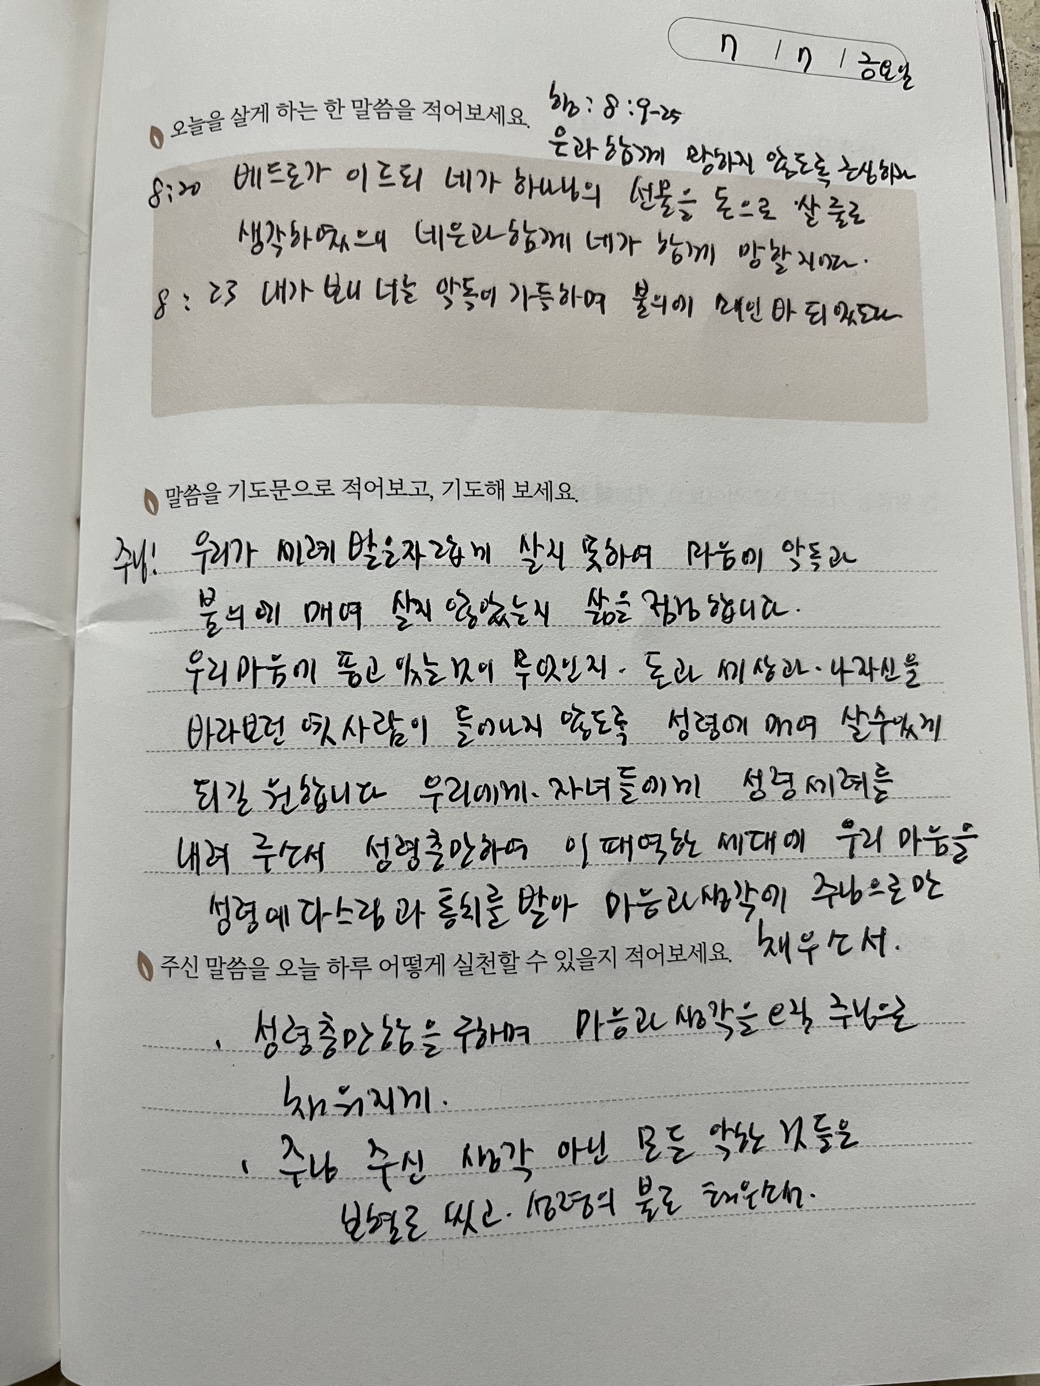 7 / 7 / 금요일
오늘을 살게 하는 한 말씀을 적어보세요.
행: 8:9-25
은과 함께 망하지 않도록 조심하라
8:20 베드로가 이르되 네가 하나님의 선물을 돈으로 살 줄로
생각하였으니 네 은과 함께 네가 함께 망할지어다.
8:23 내가 보니 너는 악독이 가득하여 불의에 매인 바 되었도다
말씀을 기도문으로 적어보고, 기도해 보세요.
주님! 우리가 세례 받은자 답게 살지 못하여 마음에 악독과
불의에 매여 살지 않았는지 삶을 점검합니다.
우리 마음에 품고 있는 것이 무엇인지. 돈과 세상과. 나자신을
바라보던 옛사람이 들어나지 않도록 성령에 매여 살수있게
되길 원합니다 우리에게. 자녀들에게 성령세례를
내려 주소서 성령충만하여 이 패역한 세대에 우리 마음을
성령에 다스림과 통치를 받아 마음과 생각에 주님으로만
채우소서.
주신 말씀을 오늘 하루 어떻게 실천할 수 있을지 적어보세요.
. 성령충만함을 구하며 마음과 생각을 오직 주님으로
채워지게.
. 주님 주신 생각 아닌 모든 악한 것들은
보혈로 씻고. 성령의 불로 태우소서.